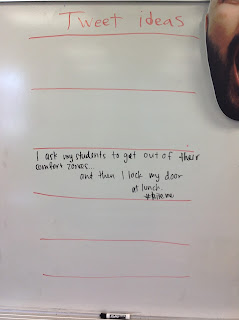 Tweet ideas
I ask my students to get out of their
comfort zones...
and then I lock my door
at lunch.
#biteme